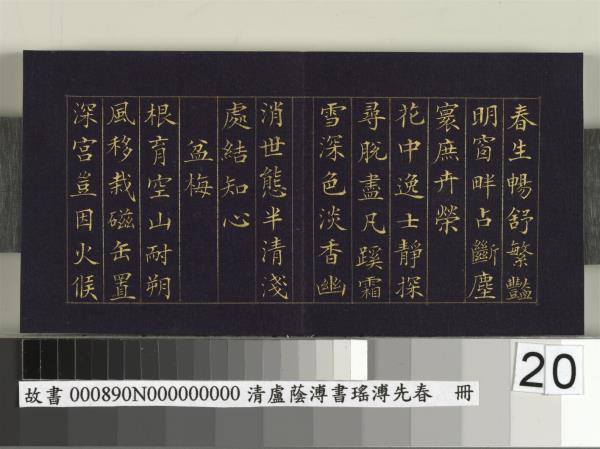 春生暢舒繁豔
明窗畔占斷塵
寰庶卉榮
花中逸士靜探
尋脫盡凡蹊霜
雪深色淡香幽
消世態半清淺
處結知心
盆梅
根育空山耐朔
風移栽磁缶置
深宮豈因火候
20
故書 000890N000000000 清盧蔭溥書瑤溥先春 冊